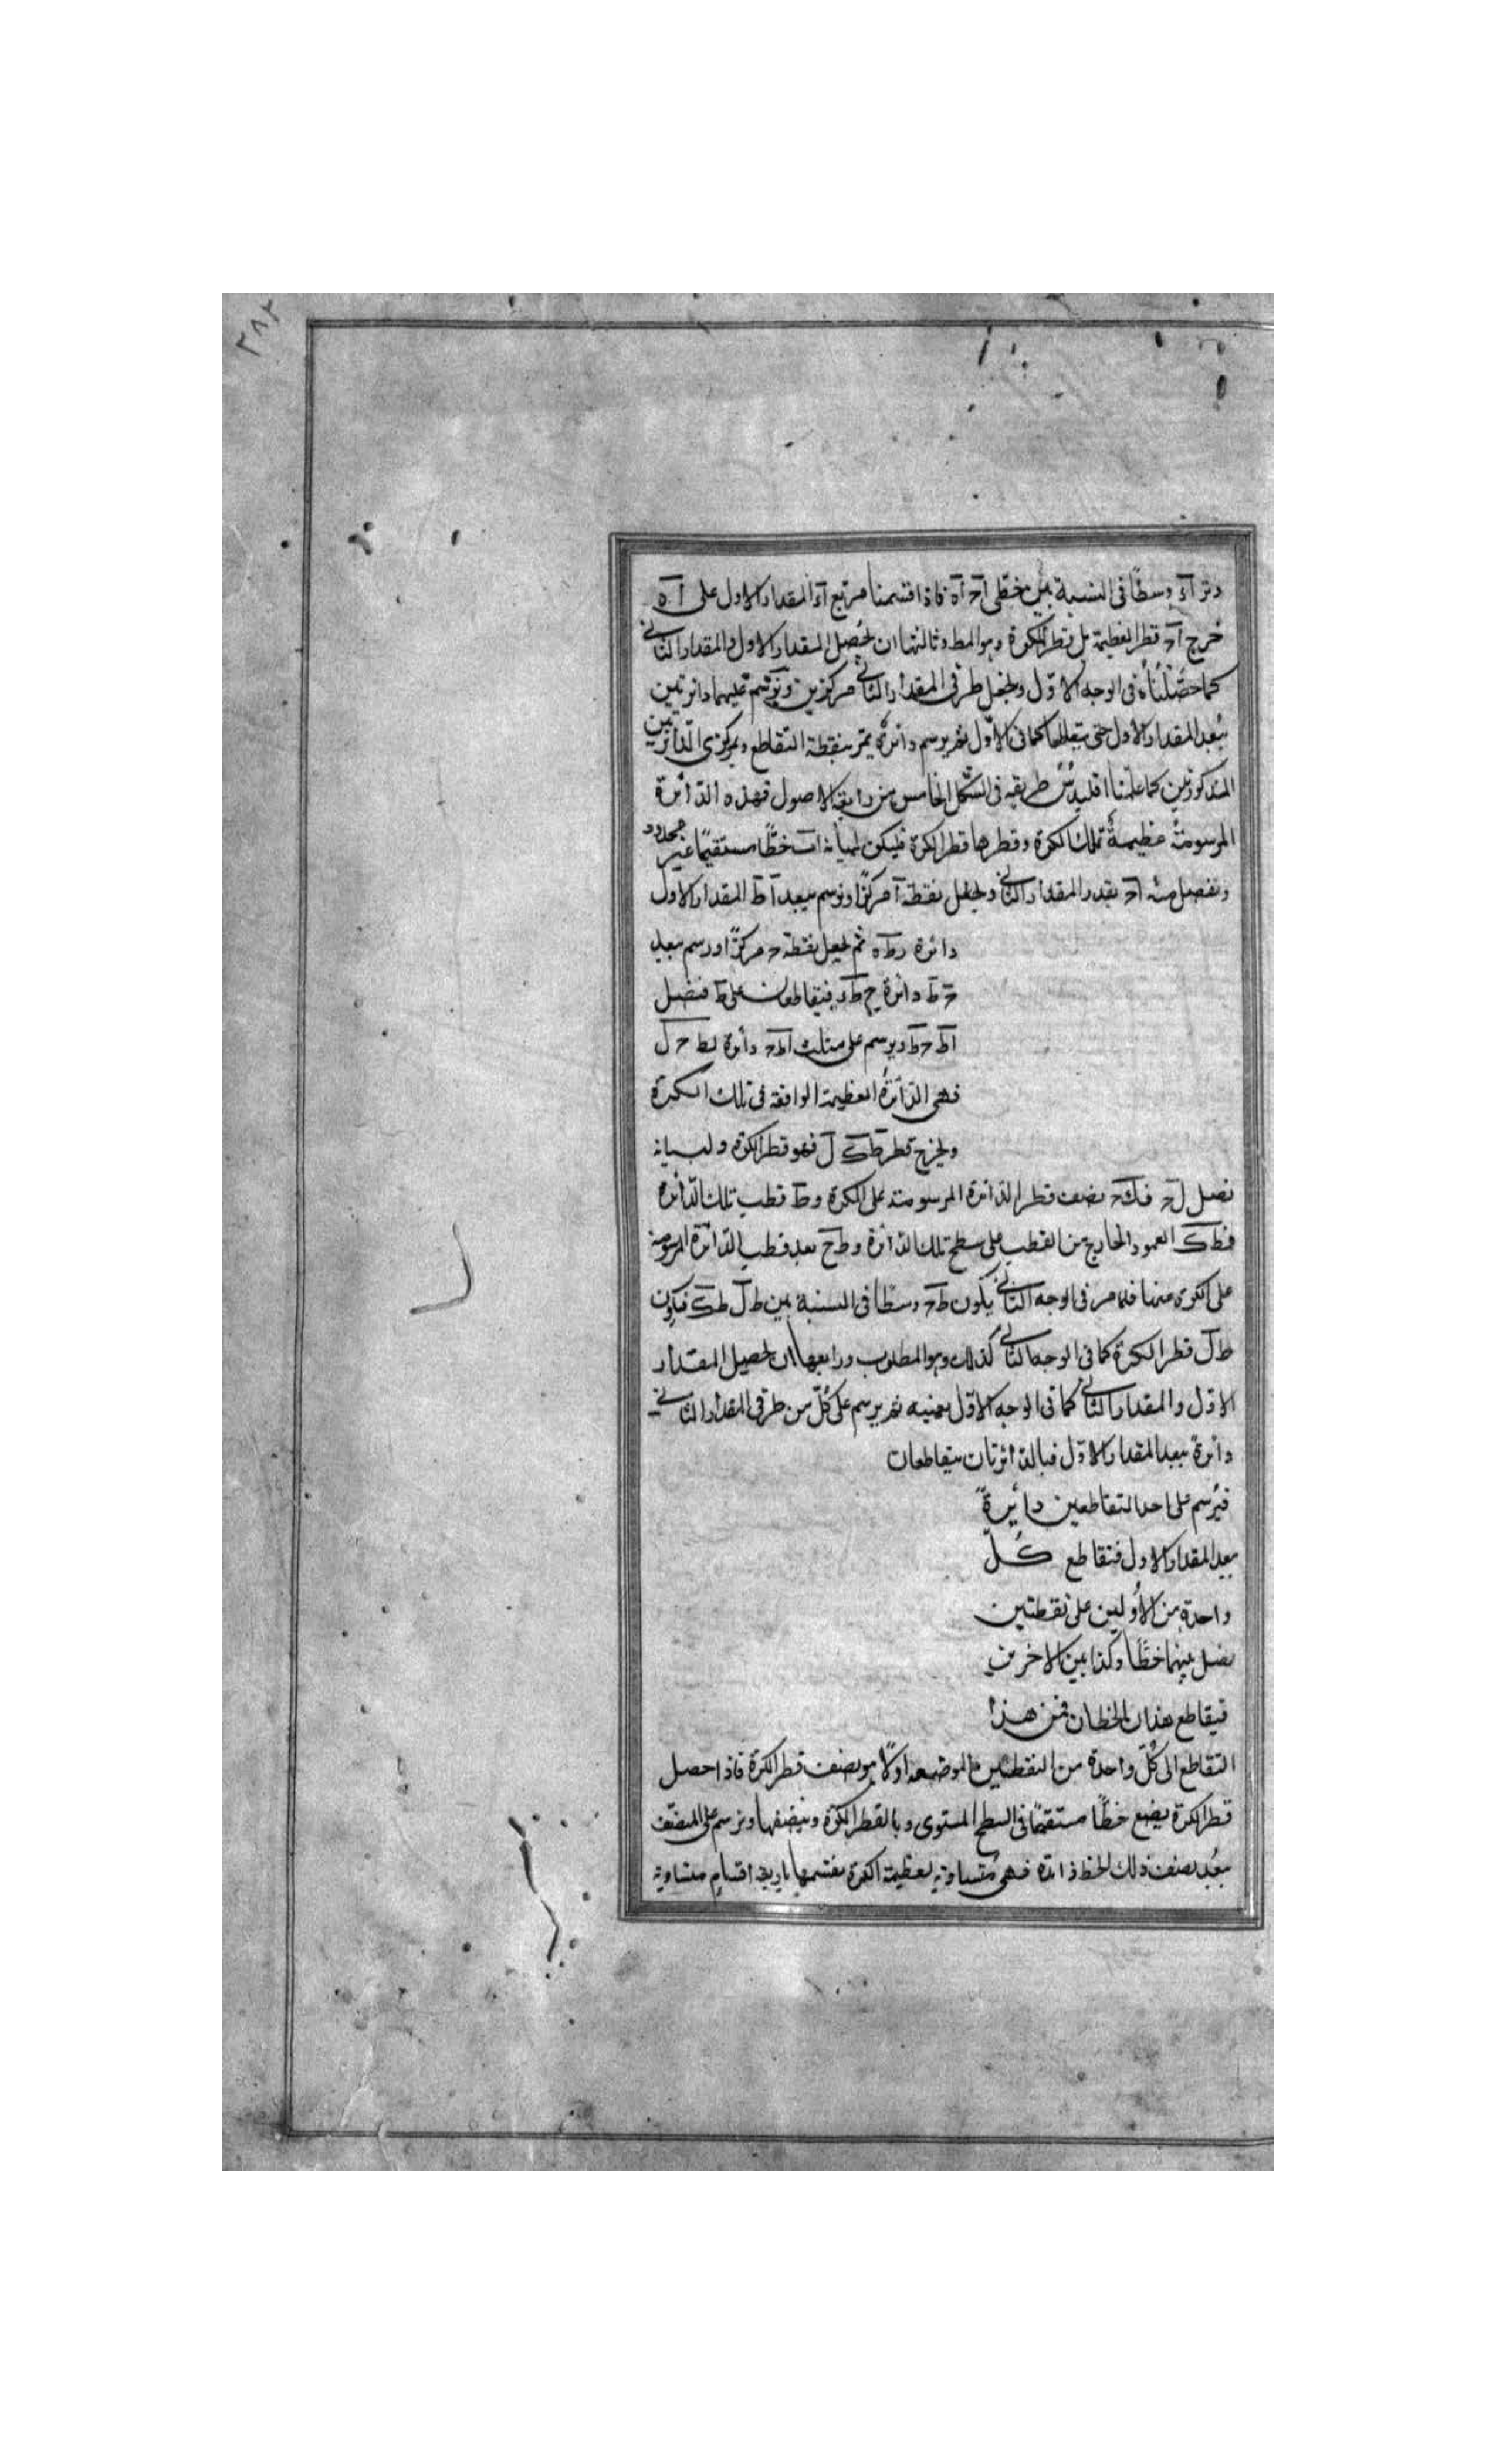 ٣٨٢
وتر آء وسطًا فى النسبة بين خطى آح آه فاذا قسمنا مربع آء المقدار الاول على آه
خرج آح قطر العظيمة بل قطر الكرة وهو المط وثالثها ان نحصل المقدار الاول والمقدار الثانى
كما حصّلناه فى الوجه الاوّل ونجعل طرفى المقدار الثانى مركزين ونرسم عليهما دائرتين
ببعد المقدار الاول حتى يتقاطعا كما فى الاوّل ثم يرسم دائرة يمرّ بنقطة التقاطع وبمركزى الدائرتين
المذكورتين كما علّمنا اقليدس طريقه فى الشكل الخامس من رابعة الاصول فهذه الدائرة
المرسومة عظيمة تلك الكرة وقطرها قطر الكرة فليكن لبيانه اب خطًّا مستقيمًا غير محدود
ونفصل منه آح بقدر المقدار الثانى ونجعل نقطة آ مركزًا ونرسم ببعد آط المقدار الاول
دائرة رطه ثم نجعل نقطة ح مركزًا ورسم ببعد
ح ط دائرة فيتقاطعان على ط فنصل
اط ح ط ويرسم على مثلث اط ح دائرة اط ح ل
فهى الدائرة العظيمة الواقعة فى تلك الكرة
ونخرج قطر طك ل فهو قطر الكرة ولبيانه
نصل ل ح فـ ك ح نصف قطر الدائرة المرسومة على الكرة و ط قطب تلك الدائرة
فـ طك العمود الخارج من القطب على سطح تلك الدائرة و ط ح بعد قطب الدائرة المرسومة
على الكرى عنها فلما مر فى الوجه الثانى يكون ط ح وسطا فى النسبة بين ط ل ط ك فيكون
ط ل قطر الكرة كما فى الوجه الثانى كذلك وهو المطلوب ورابعها ان نحصل المقدار
الاوّل والمقدار الثانى كما فى الوجه الاوّل بعينه ثم يرسم على كلّ من طرفى المقدار الثانى
دائرة ببعد المقدار الاوّل فبالدائرتان يتقاطعان
فيرسم على احد التقاطعين دائرةً
ببعد المقدار الاول فتقاطع كلّ
واحدة من الأوليين على نقطتين
نصل بينهما خطًّا وكذا بين الاخريين
فيقاطع هذان الخطان فمن هذا
التقاطع الى كلّ واحدة من النقطتين الموضوعة اولًا هو نصف قطر الكرة فاذا حصل
قطر الكرة يضع خطًّا مستقيمًا فى السطح المستوى وبالقطر الكرة وينصفها ونرسم على المنصّف
ببُعد نصف ذلك الخط دائرة فهى مُتساوية لعظيمة الكرة نقسمها باربعة اقسام متساوية